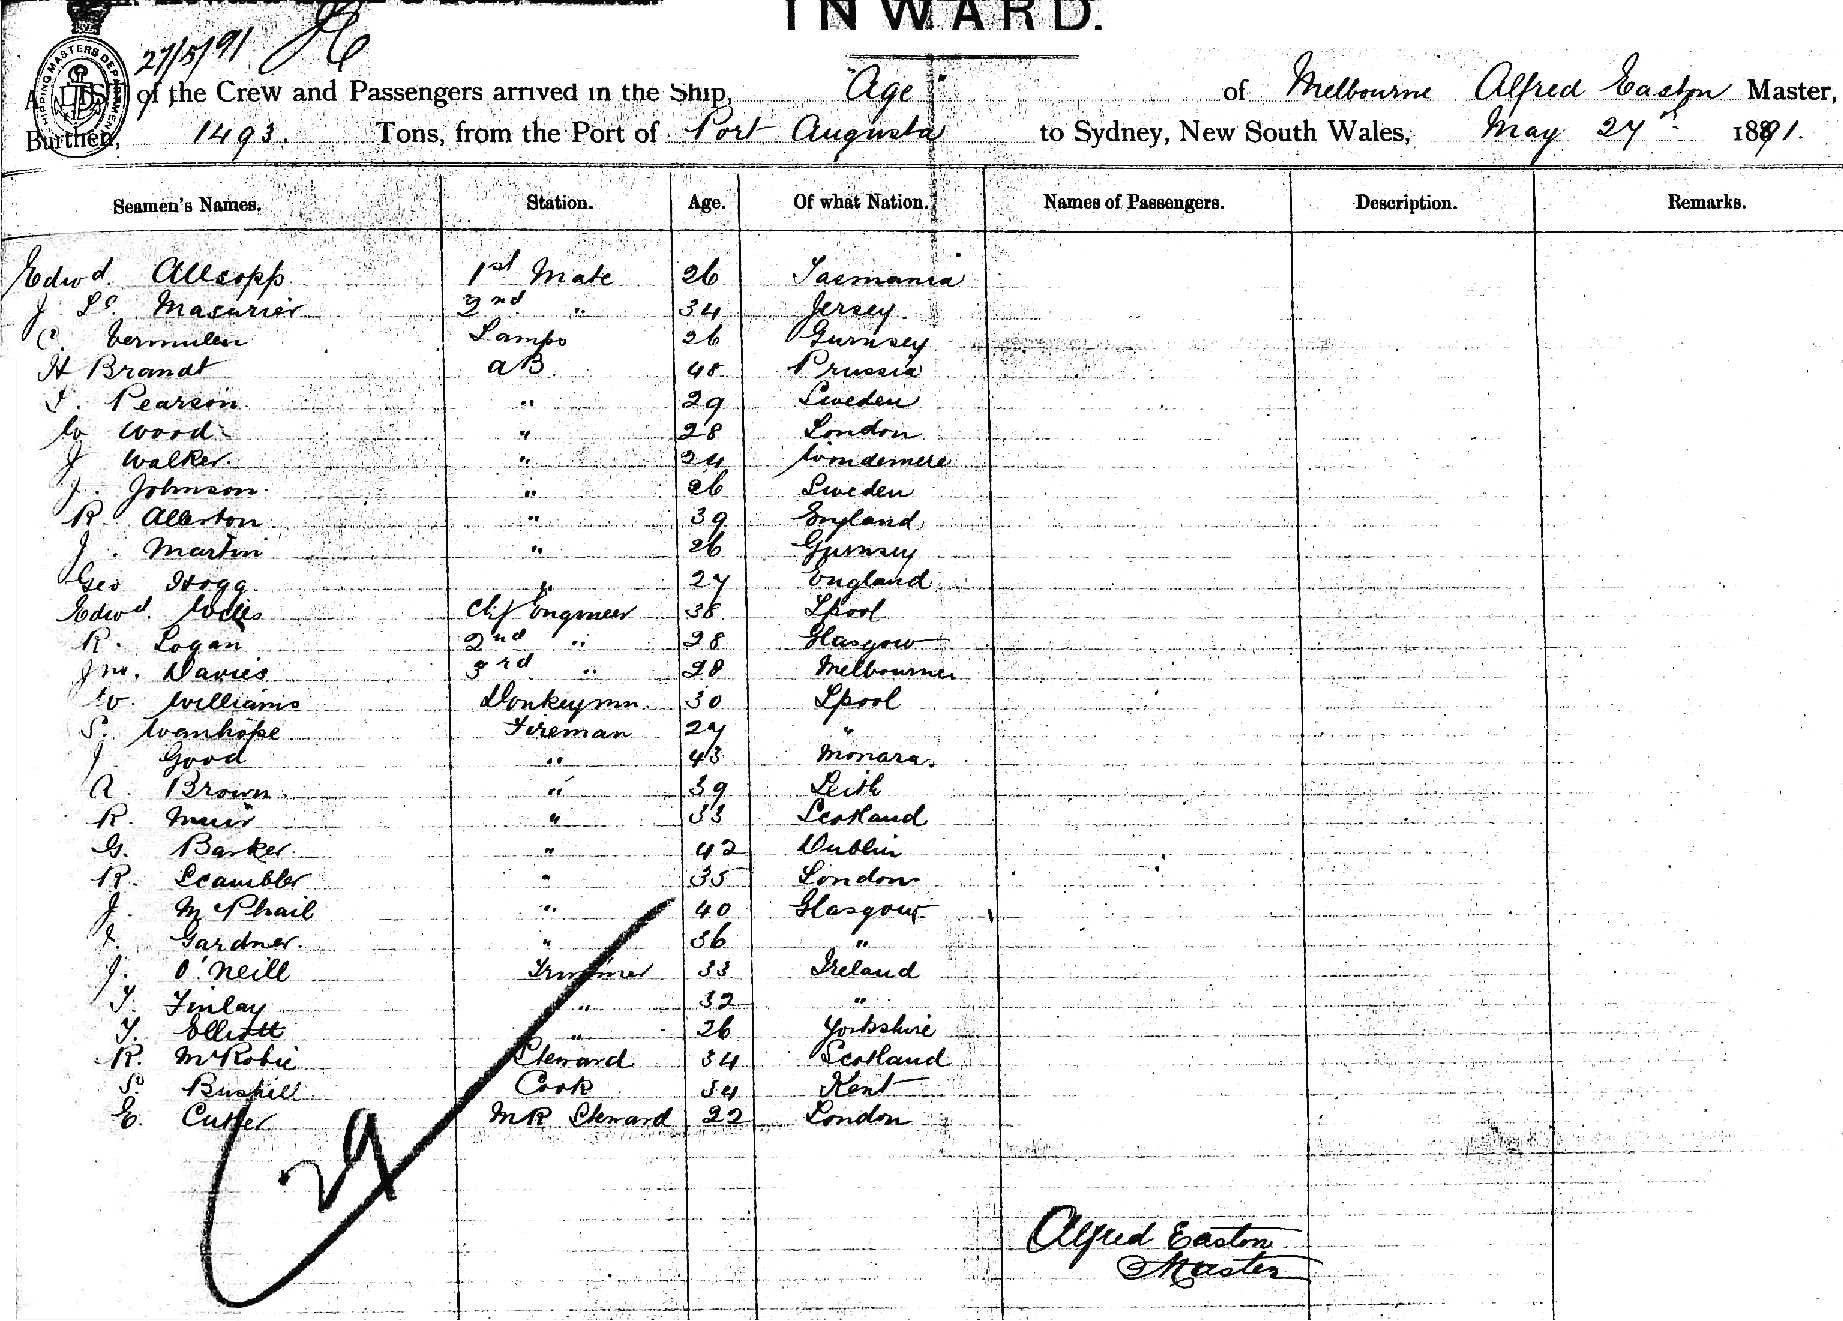 INWARD.
27/5/91
of the Crew and Passengers arrived in the Ship, "Age" of Melbourne Alfred Easton Master,
Burthen, 1493. Tons, from the Port of Port Augusta to Sydney, New South Wales, May 27th 1891.
Seamen's Names. Station. Age. Of what Nation. Names of Passengers. Description. Remarks.
Edwd. Allsopp 1st Mate 26 Tasmania
J Le Masurier 2nd " 34 Jersey
C. Vermulen Lamps 26 Gurnsey
H Brandt aB 48 Prussia
Pearson " 29 Sweden
W Wood " 28 London
J Walker " 24 Windemere
J. Johnson " 26 Sweden
R. Allerton " 39 England
J. Martin " 26 Gurnsey
Geo Hogg " 27 England
Edwd. Chf Engineer 38 Lpool
R. Logan 2nd " 28 Glasgow
Jno. Davies 3rd " 28 Melbourne
W. Williams Donkeymn. 30 Lpool
S. Wanhope Fireman 27 "
J Good " 43 Monara.
A. Brown " 39 Leith
R. Muir " 33 Scotland
G. Barker " 42 Dublin
R. Scambler " 35 London
J. McPhail " 40 Glasgow
Gardner. " 36 "
J. O'Neill Trimmer 33 Ireland
T. Finlay " 32 "
T. Elliott " 26 Yorkshire
R. McRobie Steward 34 Scotland
Bushill Cook 34 Kent
E. Cutler MR Steward 22 London
29
Alfred Easton
Master